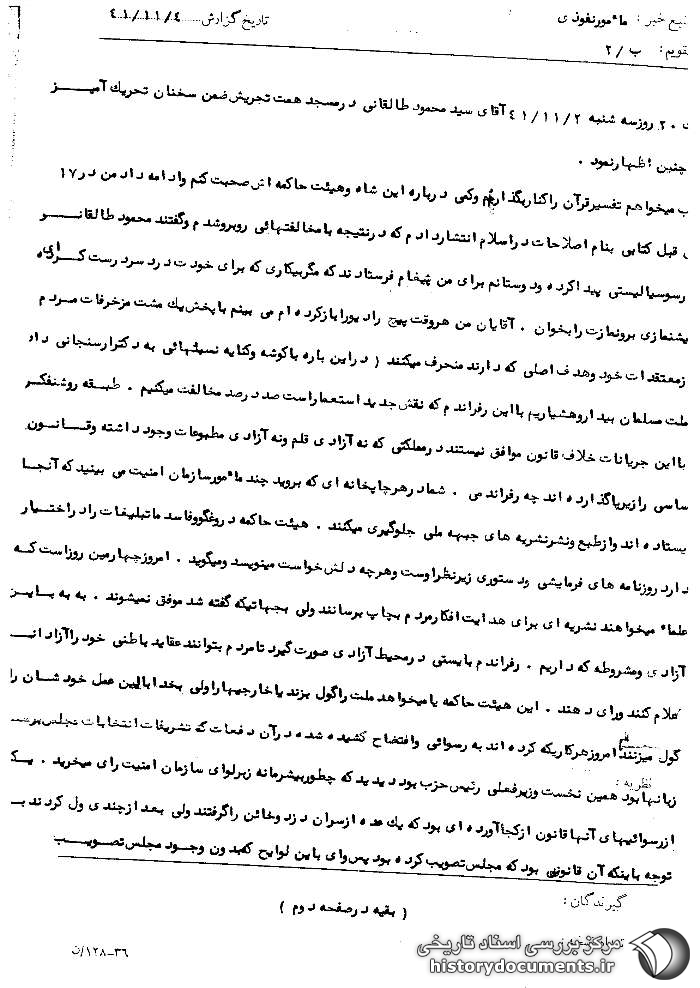 نبع خبر: مأمور نفوذ ی
تاریخ گزارش ۴۱/۱۱/۴
تقویم: ب /۲
ت ۲۰ روز سه شنبه ۴۱/۱۱/۲ آقای سید محمود طالقانی در مسجد همت تجریش ضمن سخنان تحریك آمیز
چنین اظهار نمود .
ب میخواهم تفسیر قرآن را کنار بگذارم و کمی درباره این شاه و هیئت حاکمه اش صحبت کنم و ادامه داد من در ۱۷
قبل کتابی بنام اصلاحات در اسلام انتشار دادم که در نتیجه با مخالفتهائی روبرو شدم و گفتند محمود طالقانی
ر سوسیالیستی پیدا کرده و دوستانم برای من پیغام فرستادند که مگر بیکاری که برای خودت درد سر درست کرده ای
یشنمازی برو نمازت را بخوان . آقایان من هر وقت پیچ رادیو را باز کرده ام می بینم با پخش یك مشت مزخرفات مردم
از معتقدات خود و هدف اصلی که دارند منحرف میکنند ( در این باره با گوشه و کنایه نسبتهائی به دکتر ارسنجانی داد
ملت مسلمان بیدار و هشیاریم با این رفراندم که نقش جدید استعمار است صد در صد مخالفت میکنیم . طبقه روشنفکر
با این جریانات خلاف قانون موافق نیستند در مملکتی که نه آزادی قلم و نه آزادی مطبوعات وجود داشته و قانون
ساسی را زیر پا گذارده اند چه رفراندمی . شما در هر چاپخانه ای که بروید چند مأمور سازمان امنیت می بینید که آنجا
یستاده اند و از طبع و نشر نشریه های جبهه ملی جلوگیری میکنند . هیئت حاکمه دروغگو و فاسد ما تبلیغات را در اختیار
دارد روزنامه های فرمایشی و دستوری زیر نظر اوست و هرچه دلش خواست مینویسد و میگوید . امروز چهارمین روز است که
علماء میخواهند نشریه ای برای هدایت افکار مردم بچاپ برسانند ولی بجهاتیکه گفته شد موفق نمیشوند . به به باین
آزادی و مشروطه که داریم . رفراندم بایستی در محیط آزادی صورت گیرد تا مردم بتوانند عقاید باطنی خود را آزادانه
علام کنند و رای دهند . این هیئت حاکمه یا میخواهد ملت را گول بزند یا خارجیها را ولی بخدا با این عمل خودشان را
گول میزنند امروز هر کاریکه کرده اند به رسوائی و افتضاح کشیده شده در آن دفعات که تشریفات انتخابات مجلس
نظریه :
زبانها بود همین نخست وزیر فعلی رئیس حزب بود دیدید که چطور بیشرمانه زیر لوای سازمان امنیت رای میخرید . یك
از رسوائیهای آنها قانون از کجا آورده ای بود که یك عده از سران دزد و خائن را گرفتند ولی بعد از چندی ول کردند با
توجه باینکه آن قانونی بود که مجلس تصویب کرده بود پس وای باین لوایح که بدون وجود مجلس تصویب
گیرندگان :
( بقیه در صفحه دوم )
۳۶-۱۲۸/ن
مرکز بررسی اسناد تاریخی
historydocuments.ir